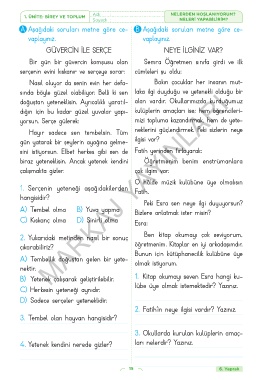 1. ÜNİTE: BİREY VE TOPLUM
Adı :
Soyadı :
NELERDEN HOŞLANIYORUM?
NELER YAPABİLİRİM?
A Aşağıdaki soruları metne göre ce-
vaplayınız.
GÜVERCİN İLE SERÇE
Bir gün bir güvercin komşusu olan
serçenin evini kıskanır ve serçeye sorar:
Nasıl oluyor da senin evin her defa-
sında böyle güzel olabiliyor? Belli ki sen
doğuştan yeteneklisin. Ayrıcalıklı yaratıl-
dığın için bu kadar güzel yuvalar yapı-
yorsun. Serçe gülerek:
Hayır sadece sen tembelsin. Tüm
gün yatarak bir şeylerin ayağına gelme-
sini istiyorsun. Elbet herkes gibi sen de
biraz yeteneklisin. Ancak yetenek kendini
çalışmakta gizler.
1. Serçenin yeteneği aşağıdakilerden
hangisidir?
A) Tembel olma B) Yuva yapma
C) Kıskanç olma D) Sinirli olma
2. Yukarıdaki metinden nasıl bir sonuç
çıkarabiliriz?
A) Tembellik doğuştan gelen bir yete-
nektir.
B) Yetenek çalışarak geliştirilebilir.
C) Herkesin yeteneği aynıdır.
D) Sadece serçeler yeteneklidir.
3. Tembel olan hayvan hangisidir?
4. Yetenek kendini nerede gizler?
B Aşağıdaki soruları metne göre ce-
vaplayınız.
NEYE İLGİNİZ VAR?
Semra Öğretmen sınıfa girdi ve ilk
cümleleri şu oldu:
Bakın çocuklar her insanın mut-
laka ilgi duyduğu ve yetenekli olduğu bir
alan vardır. Okullarımızda kurduğumuz
kulüplerin amaçları ise; hem öğrencileri-
mizi topluma kazandırmak, hem de yete-
neklerini güçlendirmek. Peki sizlerin neye
ilgisi var?
Fatih yerinden fırlayarak:
Öğretmenim benim enstrümanlara
çok ilgim var.
O halde müzik kulübüne üye olmalısın
Fatih.
Peki Esra sen neye ilgi duyuyorsun?
Bizlere anlatmak ister misin?
Esra:
Ben kitap okumayı çok seviyorum,
öğretmenim. Kitaplar en iyi arkadaşımdır.
Bunun için kütüphanecilik kulübüne üye
olmak istiyorum.
1. Kitap okumayı seven Esra hangi ku-
lübe üye olmak istemektedir? Yazınız.
2. Fatih'in neye ilgisi vardır? Yazınız
3. Okullarda kurulan kulüplerin amaç-
ları nelerdir? Yazınız.
MARKAJ YAYINLARI